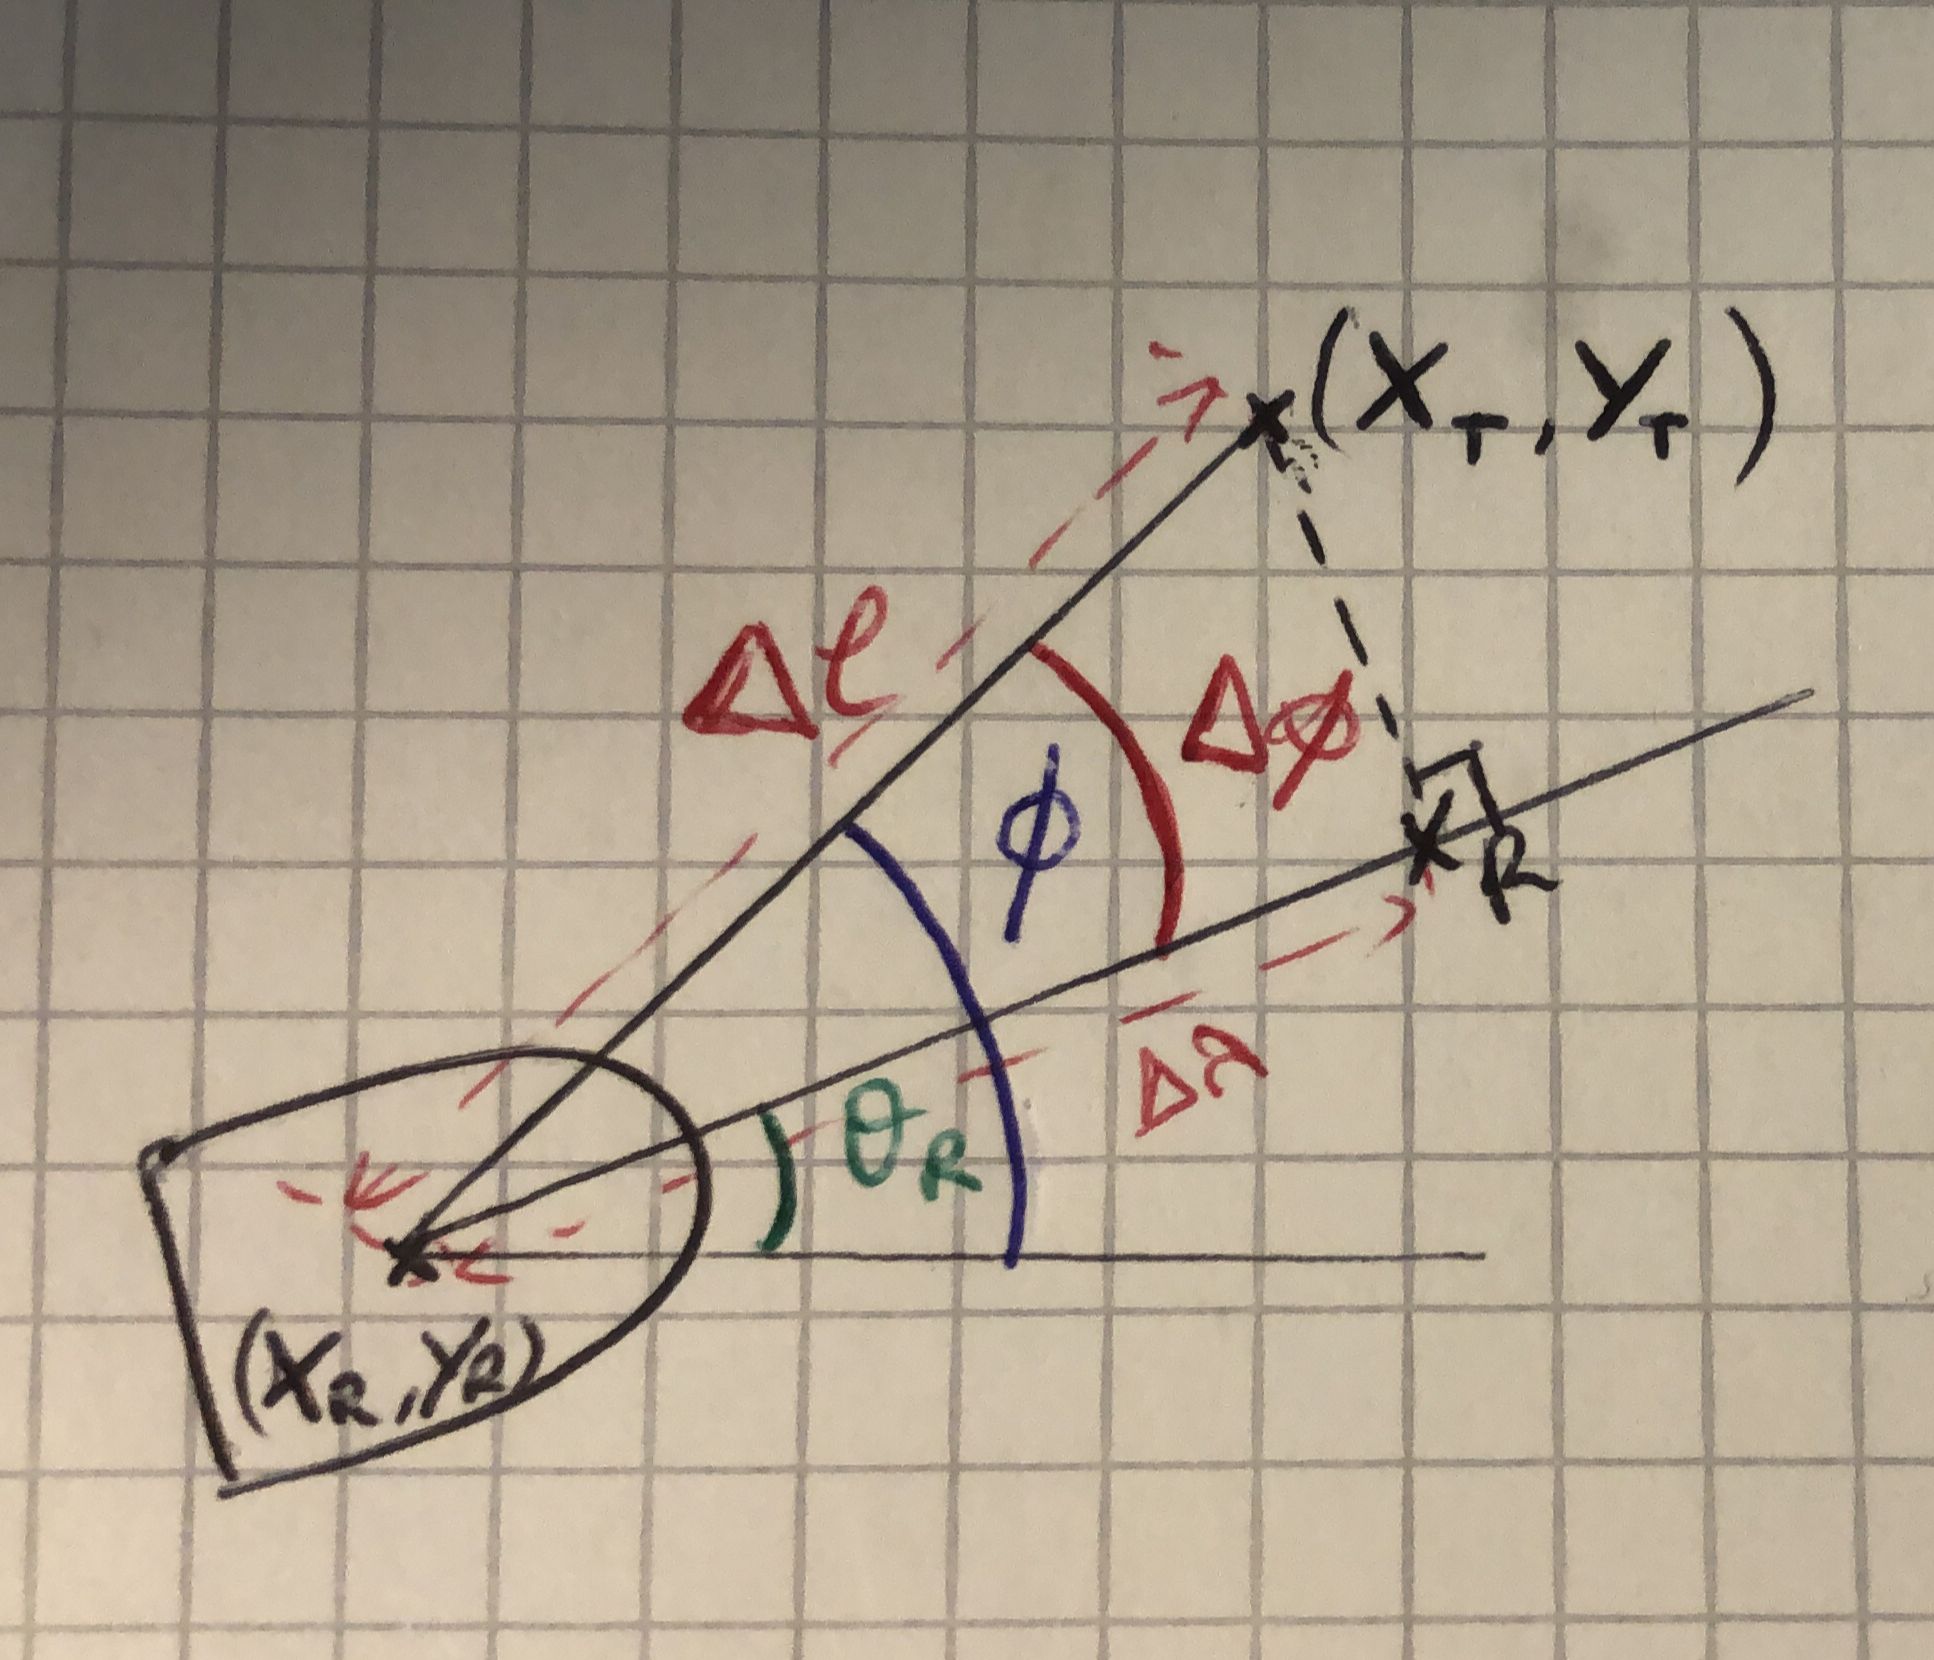 (X_T, Y_T)
Δl
Δϕ
ϕ
R
Δλ
θ_R
(X_R, Y_R)